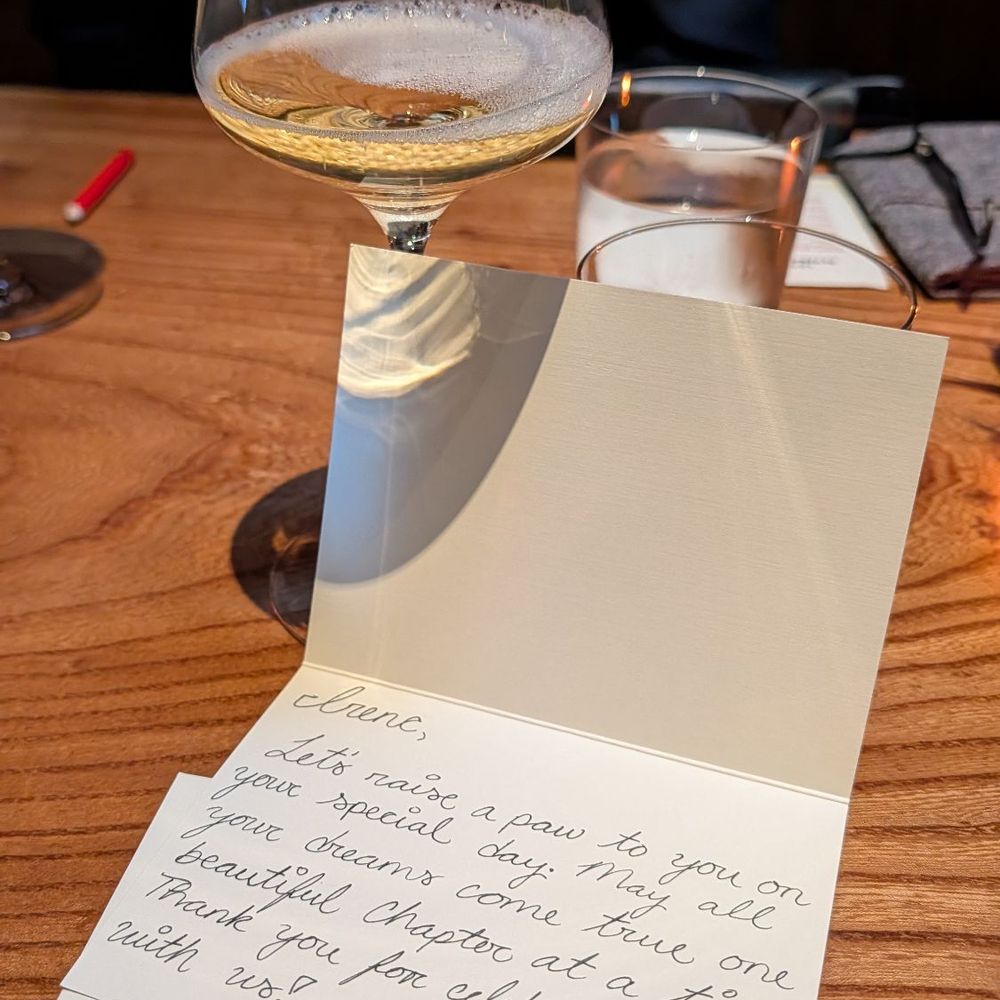 Irene,
Let's raise a paw to you on
your special day. May all
your dreams come true one
beautiful chapter at a
Thank you for
with us!